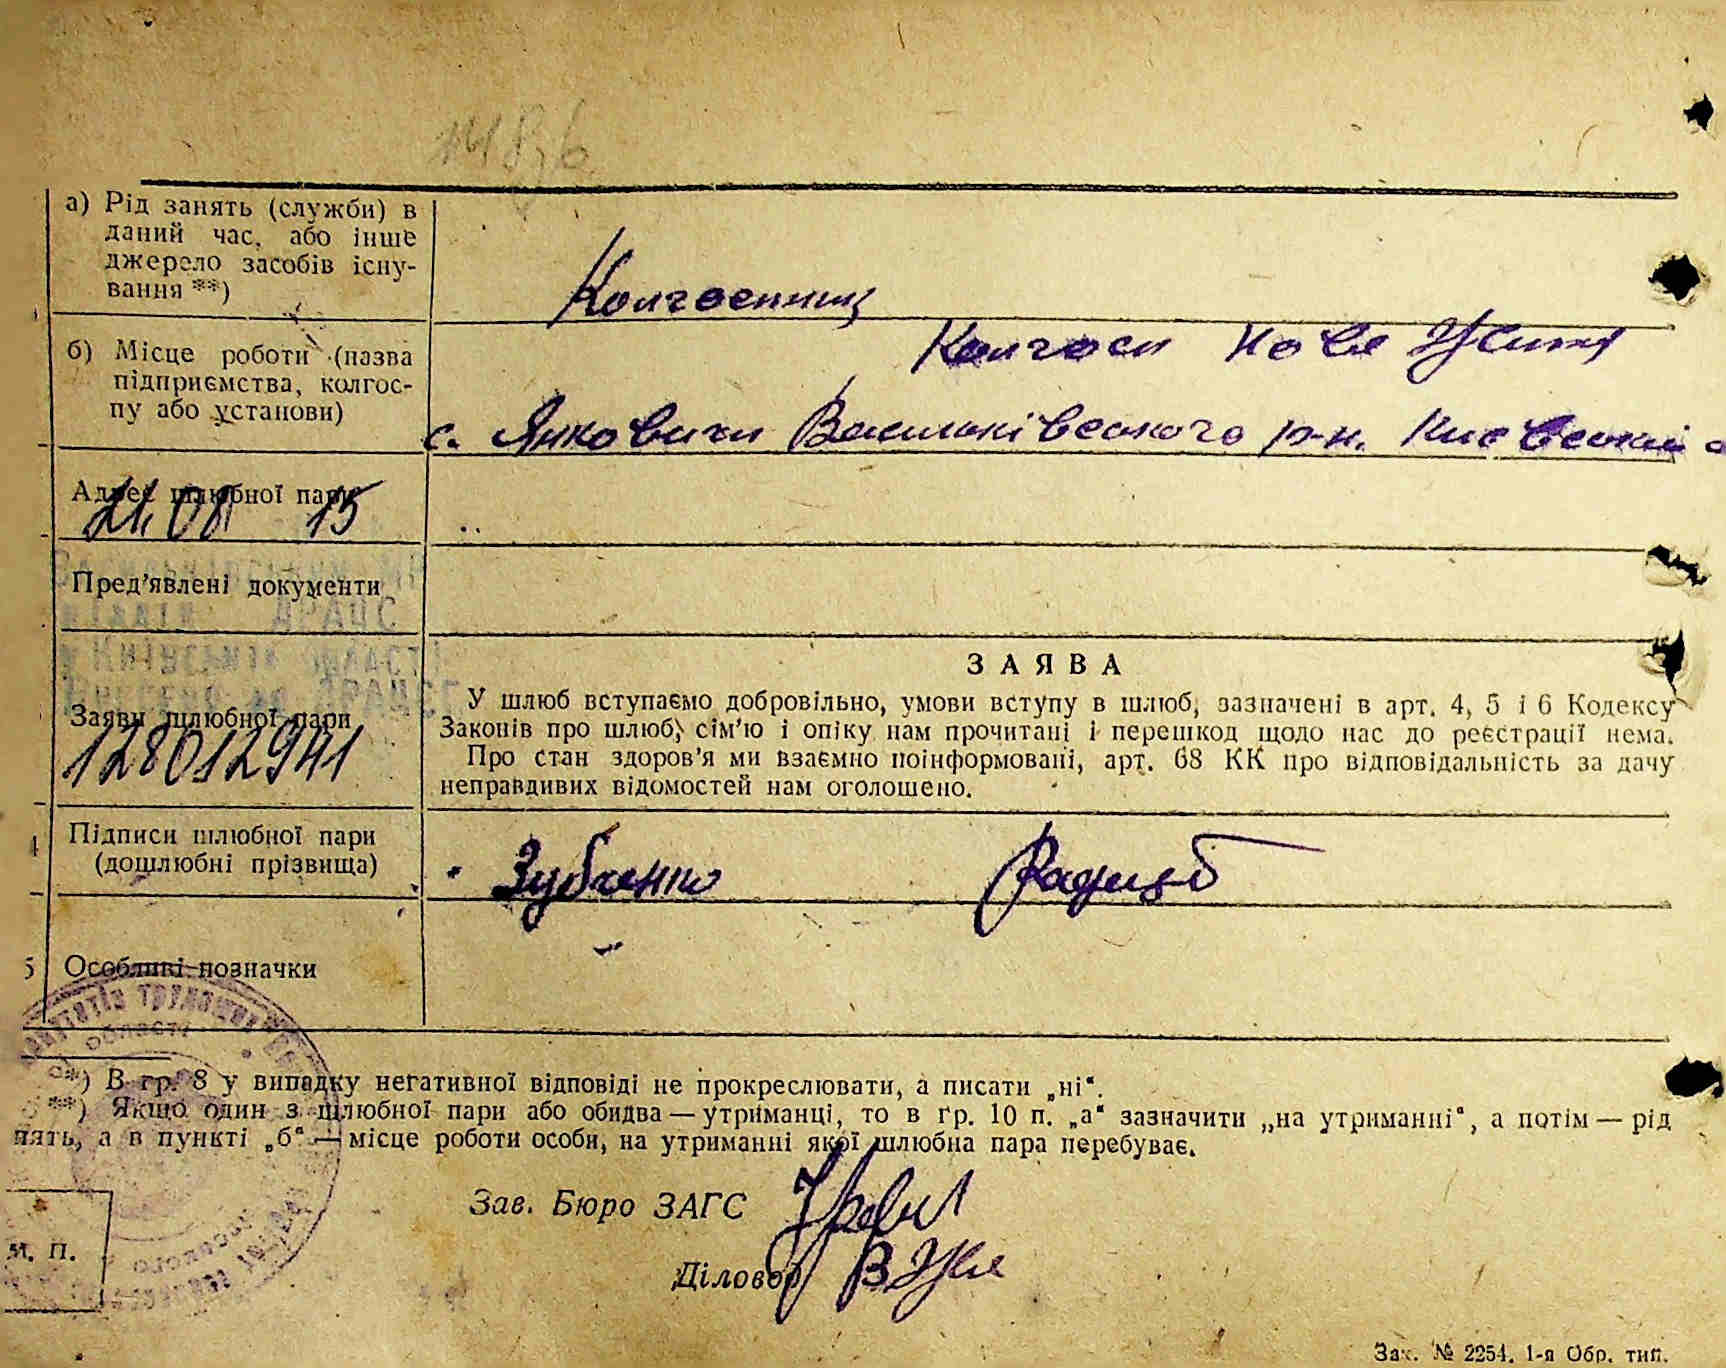 1486
а) Рід занять (служби) в
даний час, або інше
джерело засобів існу-
вання **)
Колгоспниц
б) Місце роботи (назва
підприємства, колгос-
пу або установи)
Колгосп Нове Життя
с. Янковичи Васильківського р-н. Києвської о
Адрес шлюбної пари
21.08 15
Пред'явлені документи
ДРАЦС
області
Заяви шлюбної пари
128012941
ЗАЯВА
У шлюб вступаємо добровільно, умови вступу в шлюб, зазначені в арт. 4, 5 і 6 Кодексу
Законів про шлюб, сім'ю і опіку нам прочитані і перешкод щодо нас до реєстрації нема.
Про стан здоров'я ми взаємно поінформовані, арт. 68 КК про відповідальність за дачу
неправдивих відомостей нам оголошено.
4 Підписи шлюбної пари
(дошлюбні прізвища)
Зубченко
5 Особливі позначки
трудящих
області
*) В гр. 8 у випадку негативної відповіді не прокреслювати, а писати „ні“.
**) Якщо один з шлюбної пари або обидва — утриманці, то в гр. 10 п. „а“ зазначити „на утриманні“, а потім — рід
нять, а в пункті „б“ — місце роботи особи, на утриманні якої шлюбна пара перебуває.
Зав. Бюро ЗАГС
М. П.
Діловод
Зак. № 2254. 1-я Обр. тип.